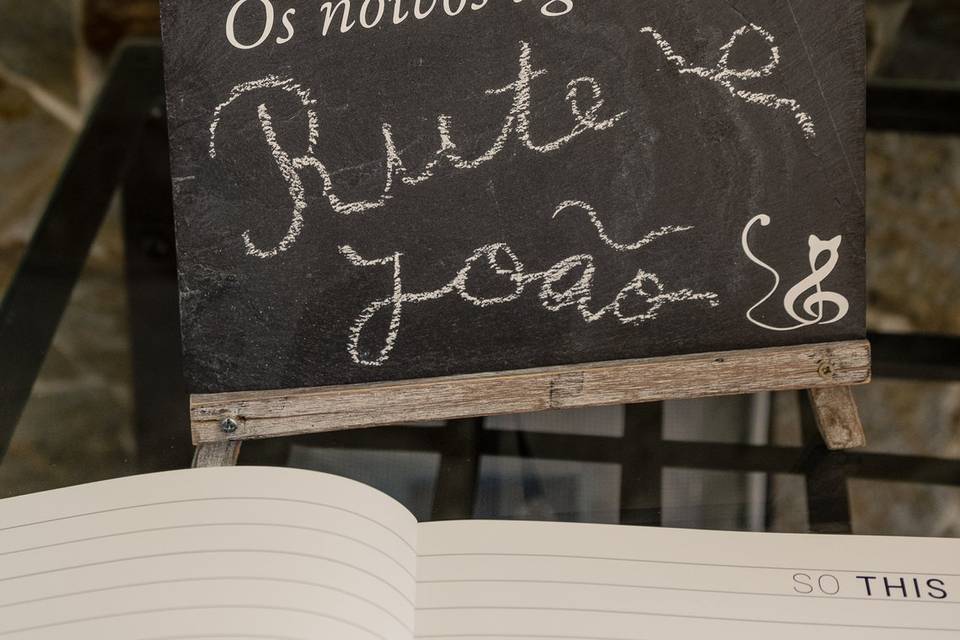 Os noivos
Rute &
João
SO THIS